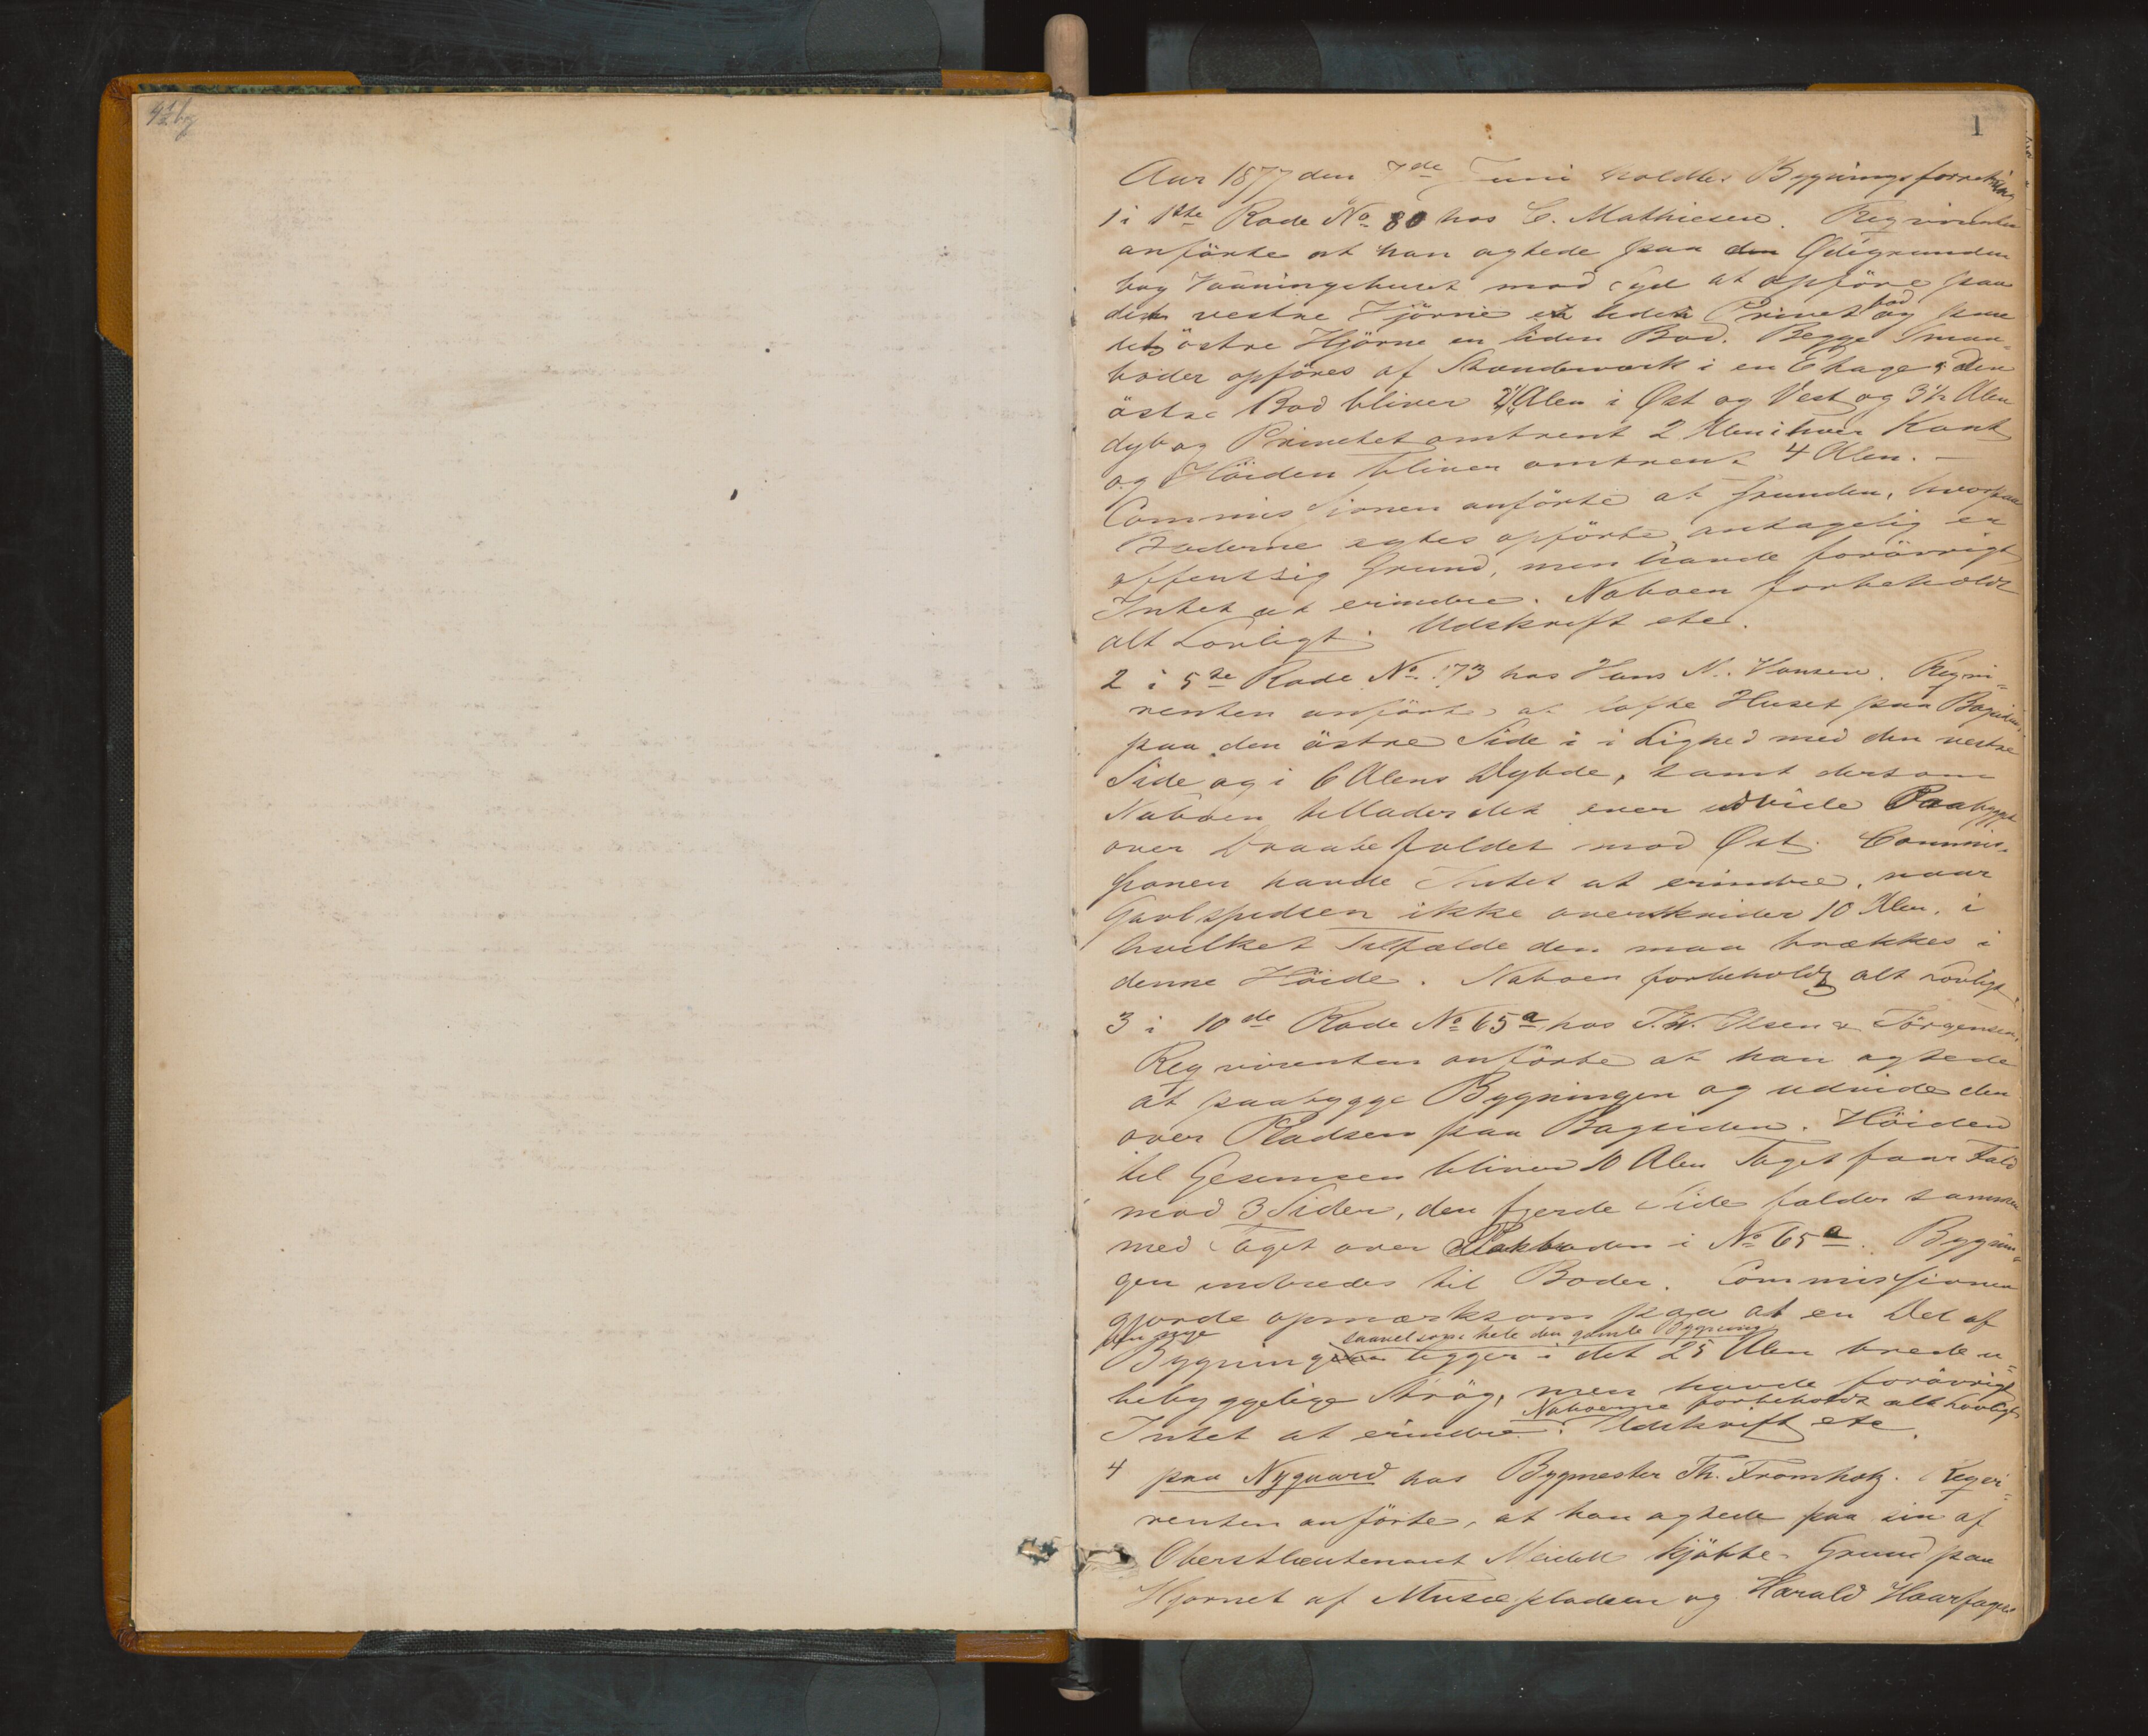 1
Aar 1877 den 7de Juni holdtes Bygningsforretning
1 i 1ste Rode No 80 hos C. Mathiesen. Reqvirenten
anförte at han agtede paa Ødegrunden
bag Vaaningshuset mod Syd at opföre paa
det vestre Hjörne et lidet Privet og paa
det östre Hjörne en liden Bod. Begge Smaa-
boder opföres af Standverk i en Etage; den
östre Bod bliver Alen i Øst og Vest og 3½ Alen
dyb og Privetet omtrent 2 Alen i hver Kant
og Höiden bliver omtrent 4 Alen. –
Commissionen anförte at Grunden, hvorpaa
Boderne agtes opförte, antagelig er
offentlig Grund, men havde forövrigt
Intet at erindre. Naboen forbeholdt
alt Lovligt. Udskrift etc.
2 i 5te Rode No 173 hos Hans N. Hansen. Reqvi-
renten anförte at löfte Huset paa Bagsiden,
paa den östre Side i i Lighed med den vestre
Side og i 6 Alens Dybde, samt dersom
Naboen tillader det over udvide Paabygget
over Draabefaldet mod Øst. Commis-
sionen havde Intet at erindre, naar
Gavlspidsen ikke overskrider 10 Alen, i
hvilket Tilfælde den maa brækkes i
denne Höide. Naboen forbeholdt alt Lovligt.
3 i 10de Rode No 65a hos T. W. Olsen & Jörgensen.
Reqvirenten anförte at han agtede
at paabygge Bygningen og udvide den
over Pladsen paa Bagsiden. Höiden
til Gesemsen bliver 10 Alen Taget faar Fald
mod 3 Sider, den fjerde Side falder sammen
med Taget over Pakboden i No 65a. Bygnin-
gen indredes til Boder. Commissionen
gjorde opmærksom paa at en Del af
den nye saavelsom hele den gamle Bygning
Bygning ligger i det 25 Alen brede u-
bebyggelige Strög, men havde forövrigt
Naboerne forbeholdt alt Lovligt
Intet at erindre. Udskrift etc.
4 paa Nygaard hos Bygmester Th. Fromholz. Reqvi-
renten anförte, at han agtede paa sin af
Oberstlieutenant Meidell kjöbte Grund paa
Hjornet af Musæpladsen og Harald Haarfagers